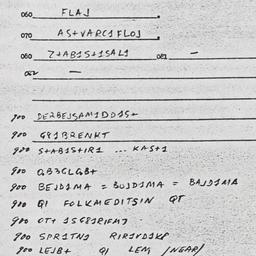 060. FLAJ
070 AS+VARC1FLOJ
080 Z+AB1S+1SAL1 081 —
082 —
900 DEZBEJSAM1DD1S+
900 G81BRENKT
900 S+AB1S+IR1 ... KAS+1
900 QB3CLGB+
900 BEJD1MA = BUJD1MA = BAJD1MA
900 Q1 FOLKMEDITSIN QT
900 OT+ 1SG81RIFM7
900 SPR1TN1 RIR1VD1KP
900 LEJB+ Q1 LEM /NEAR/